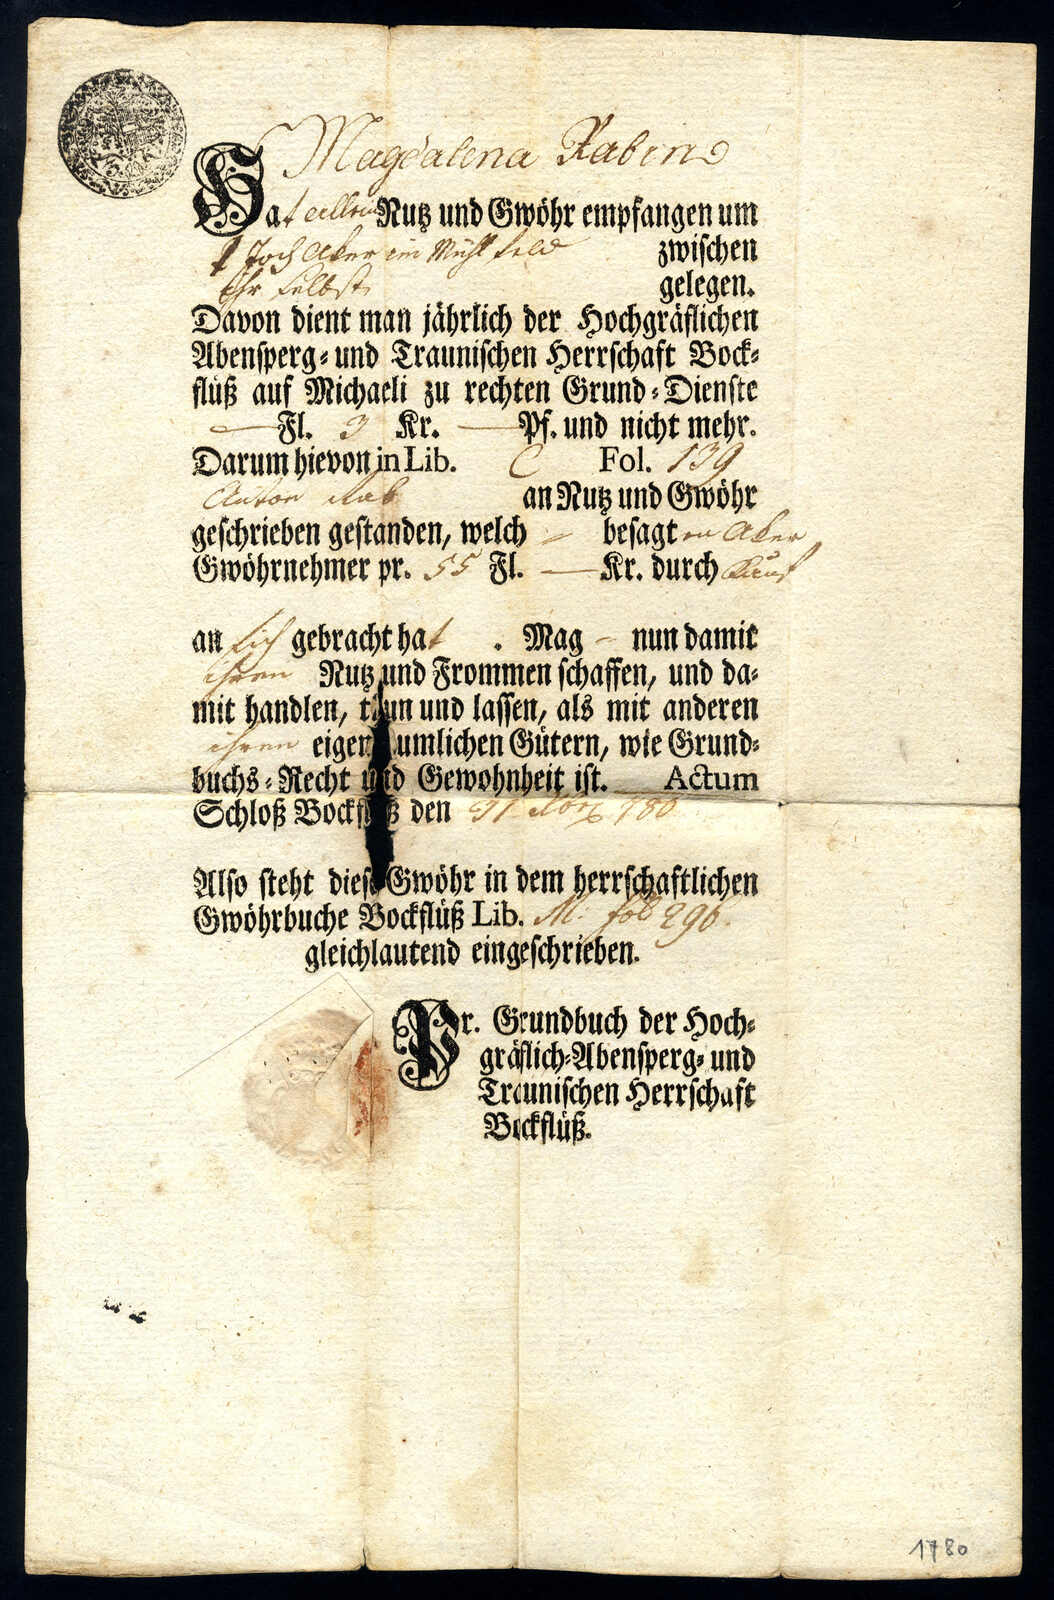 Magdalena Rabin
Hat allein Nutz und Gwöhr empfangen um
Joch Aker im Mühl feld zwischen
Ihr selbst gelegen.
Davon dient man jährlich der Hochgräflichen
Abensperg- und Traunischen Herrschaft Bock-
flüß auf Michaeli zu rechten Grund-Dienste
— Fl. 3 Kr. — Pf. und nicht mehr.
Darum hievon in Lib. C Fol. 139
Anton Rab an Nutz und Gwöhr
geschrieben gestanden, welch besagten Aker
Gwöhrnehmer pr. 55 Fl. — Kr. durch Kauf
an sich gebracht hat . Mag nun damit
ihren Nutz und Frommen schaffen, und da-
mit handlen, thun und lassen, als mit anderen
ihren eigenthumlichen Gütern, wie Grund-
buchs-Recht und Gewohnheit ist. Actum
Schloß Bockflüß den 780
Also steht diese Gwöhr in dem herrschaftlichen
Gwöhrbuche Bockflüß Lib. M: fol 296.
gleichlautend eingeschrieben.
Pr. Grundbuch der Hoch-
gräflich-Abensperg- und
Traunischen Herrschaft
Bockflüß.
1780